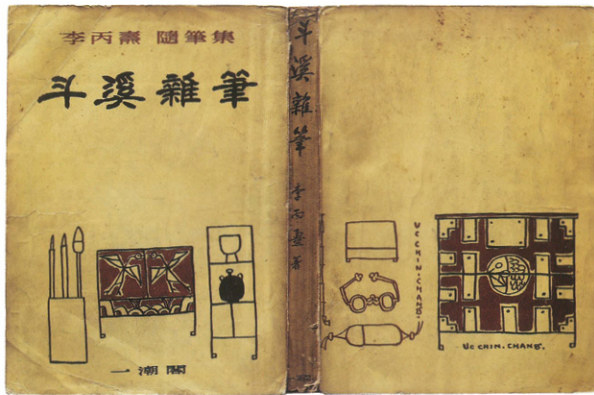 李丙燾 隨筆集
斗溪雜筆
一潮閣
斗溪雜筆
李丙燾 著
UC CHIN. CHANG.
UC CHIN. CHANG.